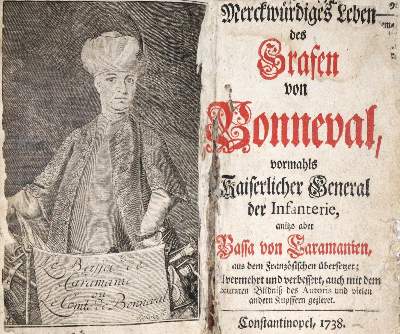 Le Bassa de
Caramanie
ou
Comte de Bonneval
Merckwürdiges Leben
des
Grafen
von
Bonneval,
vormahls
Kaiserlicher General
der Infanterie,
anitzo aber
Bassa von Caramanien,
aus dem Französischen übersetzet;
vermehrt und verbessert, auch mit dem
Bildniß des Autoris und vielen
andern Kupffern gezieret.
Constantinopel, 1738.